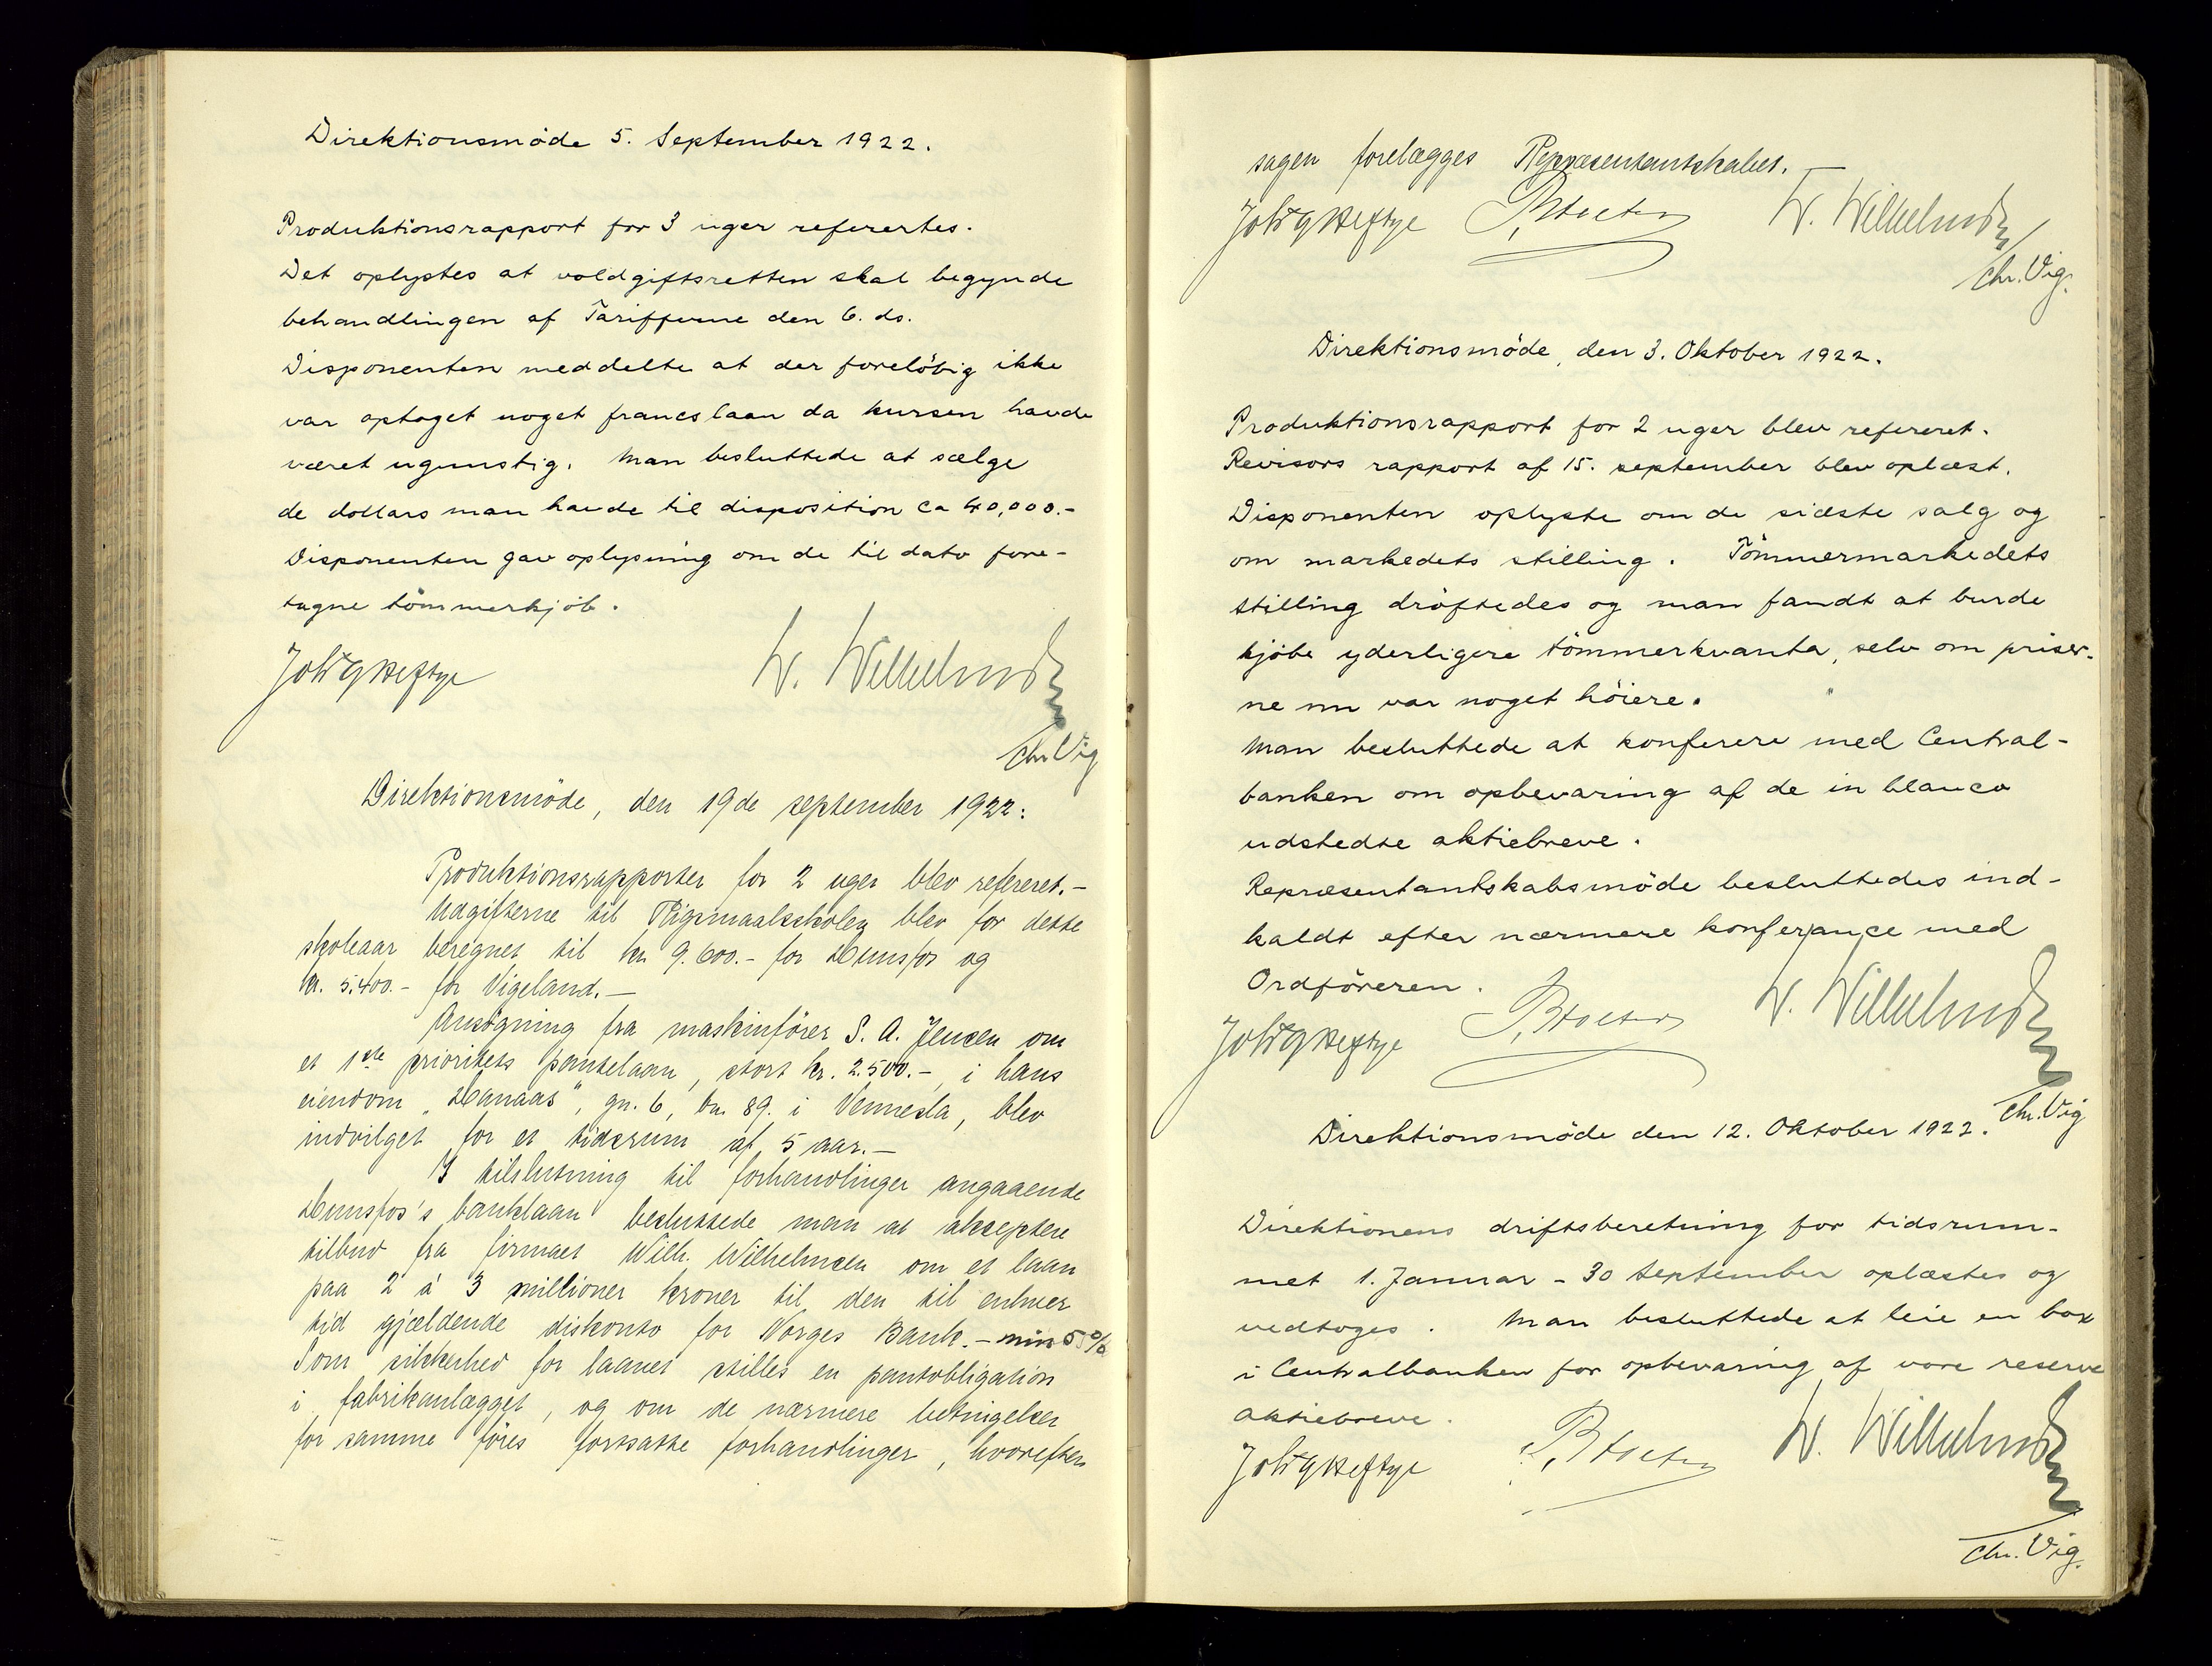 Direktionsmöde 5. September 1922.
Produktionsrapport for 3 uger referertes.
Det oplystes at voldgiftsretten skal begynde
behandlingen af Tarifferne den 6. ds.
Disponenten meddelte at der foreløbig ikke
var optaget noget francslaan da kursen havde
været ugunstig. Man besluttede at sælge
de dollars man havde til disposition ca 40,000.-
Disponenten gav oplysning om de til dato fore-
tagne tömmerkjöb.
Joh Heftye W. Wilhelmsen
Chr. Vig
Direktionsmöde, den 19de september 1922:
Produktionsrapporter for 2 uger blev refereret.-
Udgifterne til Rigsmaalsskolen blev for dette
skoleaar beregnet til kr 9.600.- for Hunsfos og
kr. 5.400.- for Vigeland.-
Ansögning fra maskinförer S. A. Jensen om
et 1ste prioritets pantelaan, stort kr. 2.500.-, i hans
eiendom "Hanaas", gn. 6, bn. 89. i Vennesla, blev
indvilget for et tidsrum af 5 aar.-
I tilslutning til forhandlinger angaaende
Hunsfos's banklaan besluttede man at akseptere
tilbud fra firmaet Wilh. Wilhelmsen om et laan
paa 2 à 3 millioner kroner til den til enhver
tid gjældende diskonto for Norges Bank.- min 5%
Som sikkerhed for laanet stilles en pantobligation
i fabrikanlægget, og om de nærmere betingelser
for samme föres fortsatte forhandlinger, hvorefter
sagen forelægges Repræsentantskabet.-
Joh Heftye W. Wilhelmsen
Chr. Vig.
Direktionsmöde, den 3. Oktober 1922.
Produktionsrapport for 2 uger blev refereret.
Revisors rapport af 15. september blev oplæst.
Disponenten oplyste om de sidste salg og
om markedets stilling. Tömmermarkedets
stilling dröftedes og man fandt at burde
kjöbe yderligere tömmerkvanta, selv om priser-
ne nu var noget höiere.
Man besluttede at konferere med Central-
banken om opbevaring af de in blanco
udstedte aktiebreve.
Repræsentantskabsmöde besluttedes ind-
kaldt efter nærmere konferance med
Ordföreren.
Joh Heftye W. Wilhelmsen
Chr. Vig
Direktionsmöde den 12. Oktober 1922.
Direktionens driftsberetning for tidsrum-
met 1. Januar - 30 September oplæstes og
vedtoges. Man besluttede at leie en box
i Centralbanken for opbevaring af vore reserve
aktiebreve.
Joh Heftye W. Wilhelmsen
Chr. Vig.